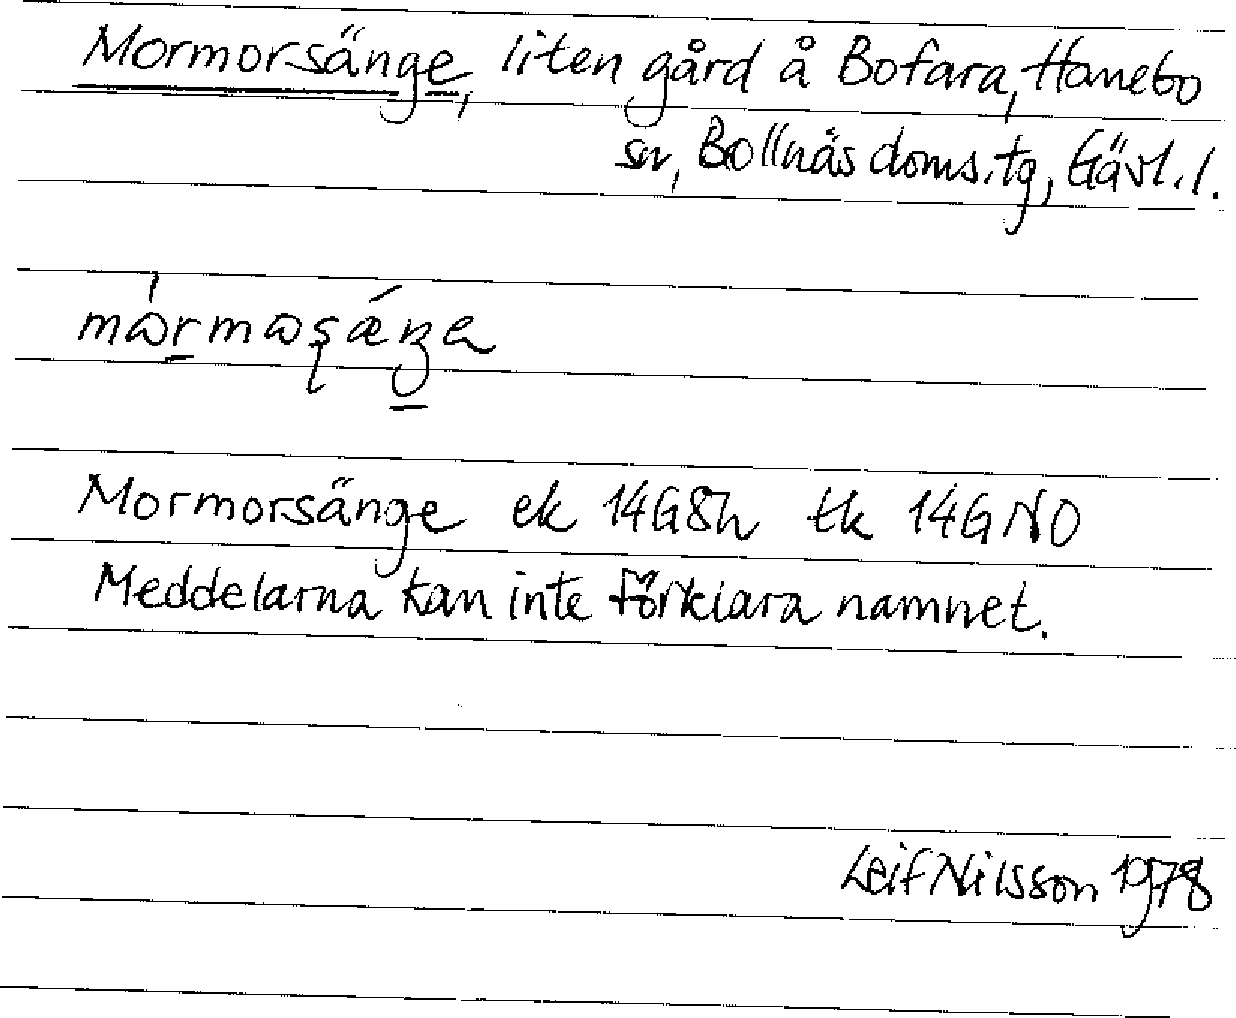 Mormorsänge, liten gård å Bofara, Hanebo
sn, Bollnäs doms.tg, Gävl.l.
Mormorsänge ek 14G8h tk 14GNO
Meddelarna kan inte förklara namnet.
Leif Nilsson 1978